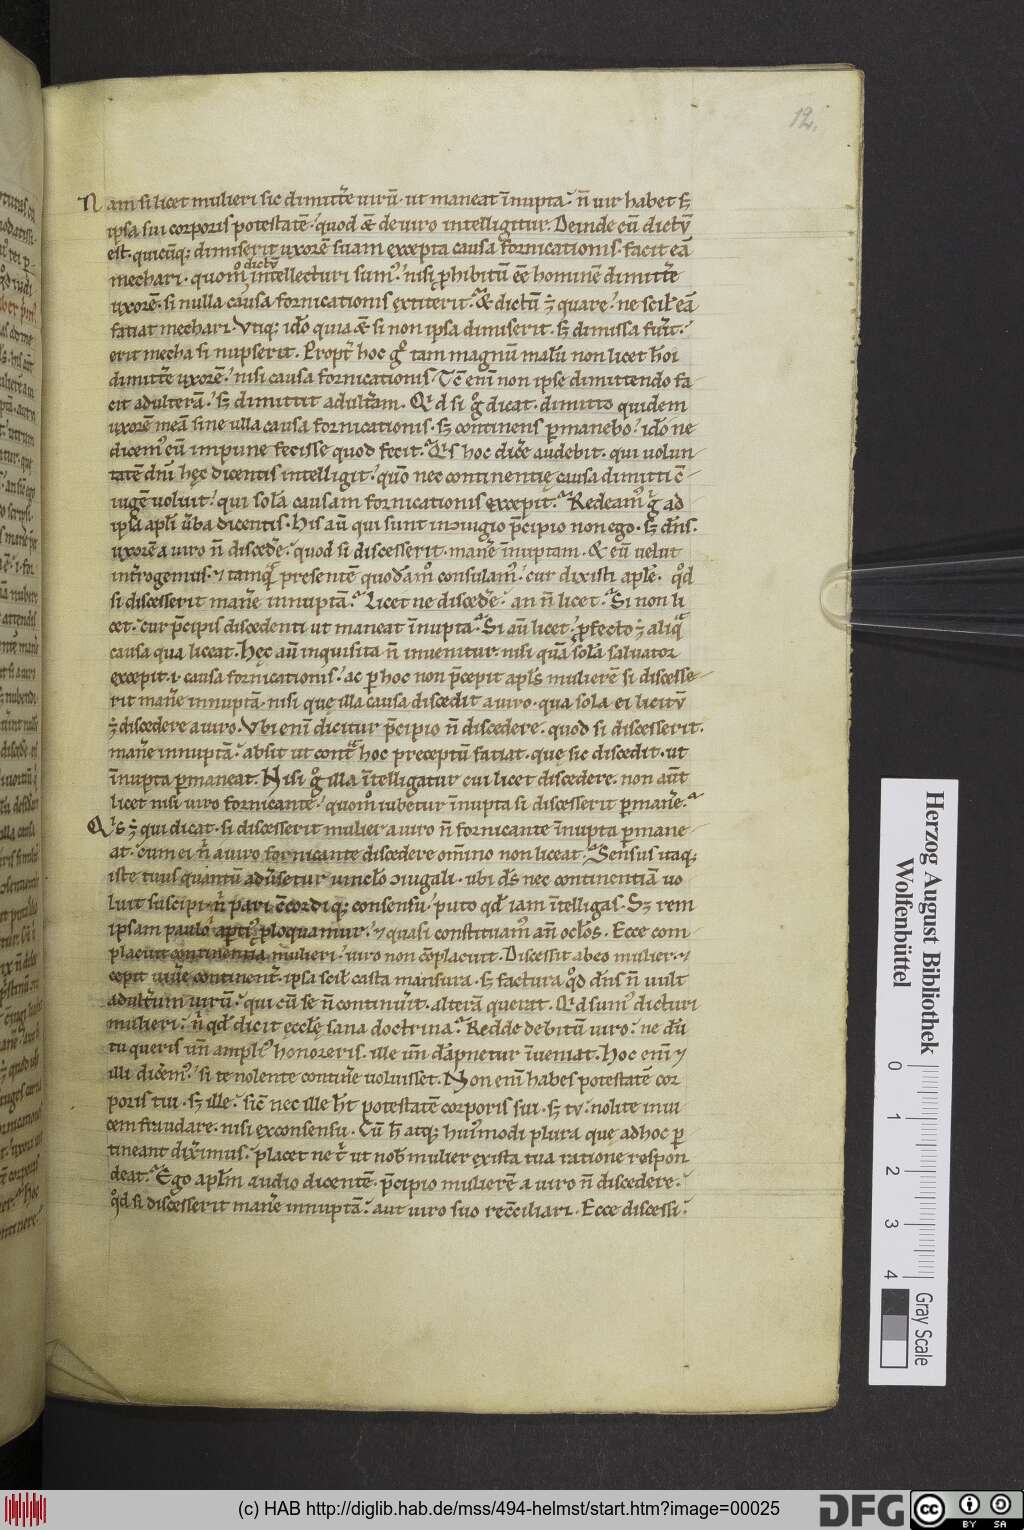 12.
Nam si licet mulieri sic dimitt̄e uirū· ut maneat īnupta: n̄ uir habet sꝫ
ipsa sui corporis potestatē· quod &̄ de uiro intelligitur. Deinde cū dictū
est· quicūq; dimiserit uxorē suam excepta causa fornicationis· facit eā
dictū
mechari· quomͦ intellecturi sumˀ: nisi ꝓhibitū ēe hominē dimitt̄e
uxorē· si nulla causa fornicationis ęxtiterit? & dictū ÷ quare: ne scił eā
fatiat mechari. Vtiq; idō quia &̄ si non ipsa dimiserit· sꝫ dimissa fuīt:
erit mecha si nupserit. Propt̄ hoc gͦ tam magnū malū non licet hōi
dimitt̄e uxorē: nisi causa fornicationis. Tc̄ enī non ipse dimittendo fa
cit adulterā: sꝫ dimittit adultām. Qd si gͦ dicat· dimitto quidem
uxorē meā sine ulla causa fornicationis· sꝫ continens ꝑmanebo: idō ne
dicemˀ eū impune fecisse quod fecit? Qis hoc dic̄e audebit· qui uolun
tatē dn̄i hęc dicentis intelligit: quō nec continentię causa dimitti c̄
iugē uoluit: qui solā causam fornicationis excepit? Redeamˀ gͥ ad
ipsā apłi ūba dicentis· His aū qui sunt in ↄiugio p̄cipio non ego· sꝫ dn̄s·
uxorē a uiro n̄ disced̄e: quod si discesserit· man̄e īnuptam. & eū uelut
int̄rogemus· ⁊ tamqͣ presentē quodāmͦ consulamˀ: cur dixisti aplē· qͦd
si discesserit man̄e innuptā? Licet ne disced̄e: an n̄ licet? Si non li
cet: cur p̄cipis discedenti ut maneat īnupta? Si aū licet: ꝓfecto ÷ aliqͣ
causa qua liceat. Hęc aū inquisita n̄ inuenitur· nisi quā solā saluator
excepit· i· causa fornicationis: ac ꝑ hoc non p̄cepit apłs mulierē si discesse
rit man̄e innuptā· nisi quę illa causa discedit a uiro· qua sola ei licitū
÷ discedere a uiro. Vbi enī dicitur p̄cipio n̄ discedere· quod si discesserit·
man̄e innuptā: absit ut contͣ hoc preceptū fatiat· quę sic discedit· ut
īnupta ꝑmaneat. Nisi gͦ illa ītelligatur cui licet discedere· non aūt
licet nisi uiro fornicante: quomͦ iubetur īnupta si discesserit ꝑman̄e?
Qis ÷ qui dicat· si discesserit mulier a uiro n̄ fornicante īnupta ꝑmane
at: cum ei n̄ a uiro fornicante discedere om̄ino non liceat? Sensus itaq;
iste tuus quantū aduersetur uinclō ↄiugali· ubi dn̄s nec continentiā uo
luit suscipi n̄ pari c̄cordiq; consensu: puto qd̄ iam ītelligas. Sꝫ rem
ipsam paulō aptiˀ ꝓloquamur· ⁊ quasi constituamˀ an̄ oclōs. Ecce com
placuit continentia mulieri: uiro non cōplacuit. Discessit ab eo mulier· ⁊
cepit uiūe continent̄· ipsa scił casta mansura· sꝫ factura qͦd dn̄s n̄ uult
adult̄um uirū: qui cū se n̄ continuīt· alterā querat. Qd sumˀ dicturi
mulieri: n̄ qd̄ dicit ęcclę sana doctrina? Redde debitū uiro: ne dū
tu queris un̄ ampliˀ honoreris· ille un̄ dāpnetur īueniat. Hoc enī ⁊
illi dic̄emˀ: si te nolente contin̄e uoluisset. Non enī habes potestatē cor
poris tui· sꝫ ille: sic̄ nec ille h̄t potestatē corporis sui· sꝫ tu: nolite inui
cem fraudare· nisi ex consensu. Cū h̄ atq; huiˀmodi plura quę ad hoc ꝑ
tineant dix̄imus: placet ne t̄ ut nob̄ mulier ex ista tua ratione respon
deat? Ego apłm audio dicentē· p̄cipio mulierē a uiro n̄ discedere:
qͦd si discesserit man̄e innuptā: aut uiro suo recc̄iliari. Ecce discessi:
Herzog August Bibliothek
Wolfenbüttel
0 1 2 3 4
Gray Scale
(c) HAB http://diglib.hab.de/mss/494-helmst/start.htm?image=00025
DFG
cc BY SA